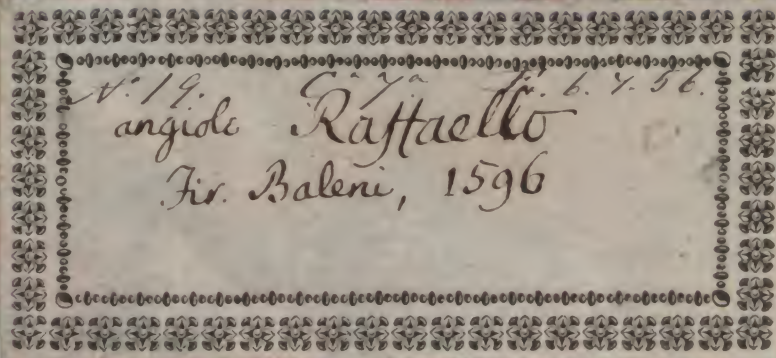 N.º 19. Cª 7.ª 6. 7. 56.
angiolo Raffaello
Fir. Baleni, 1596